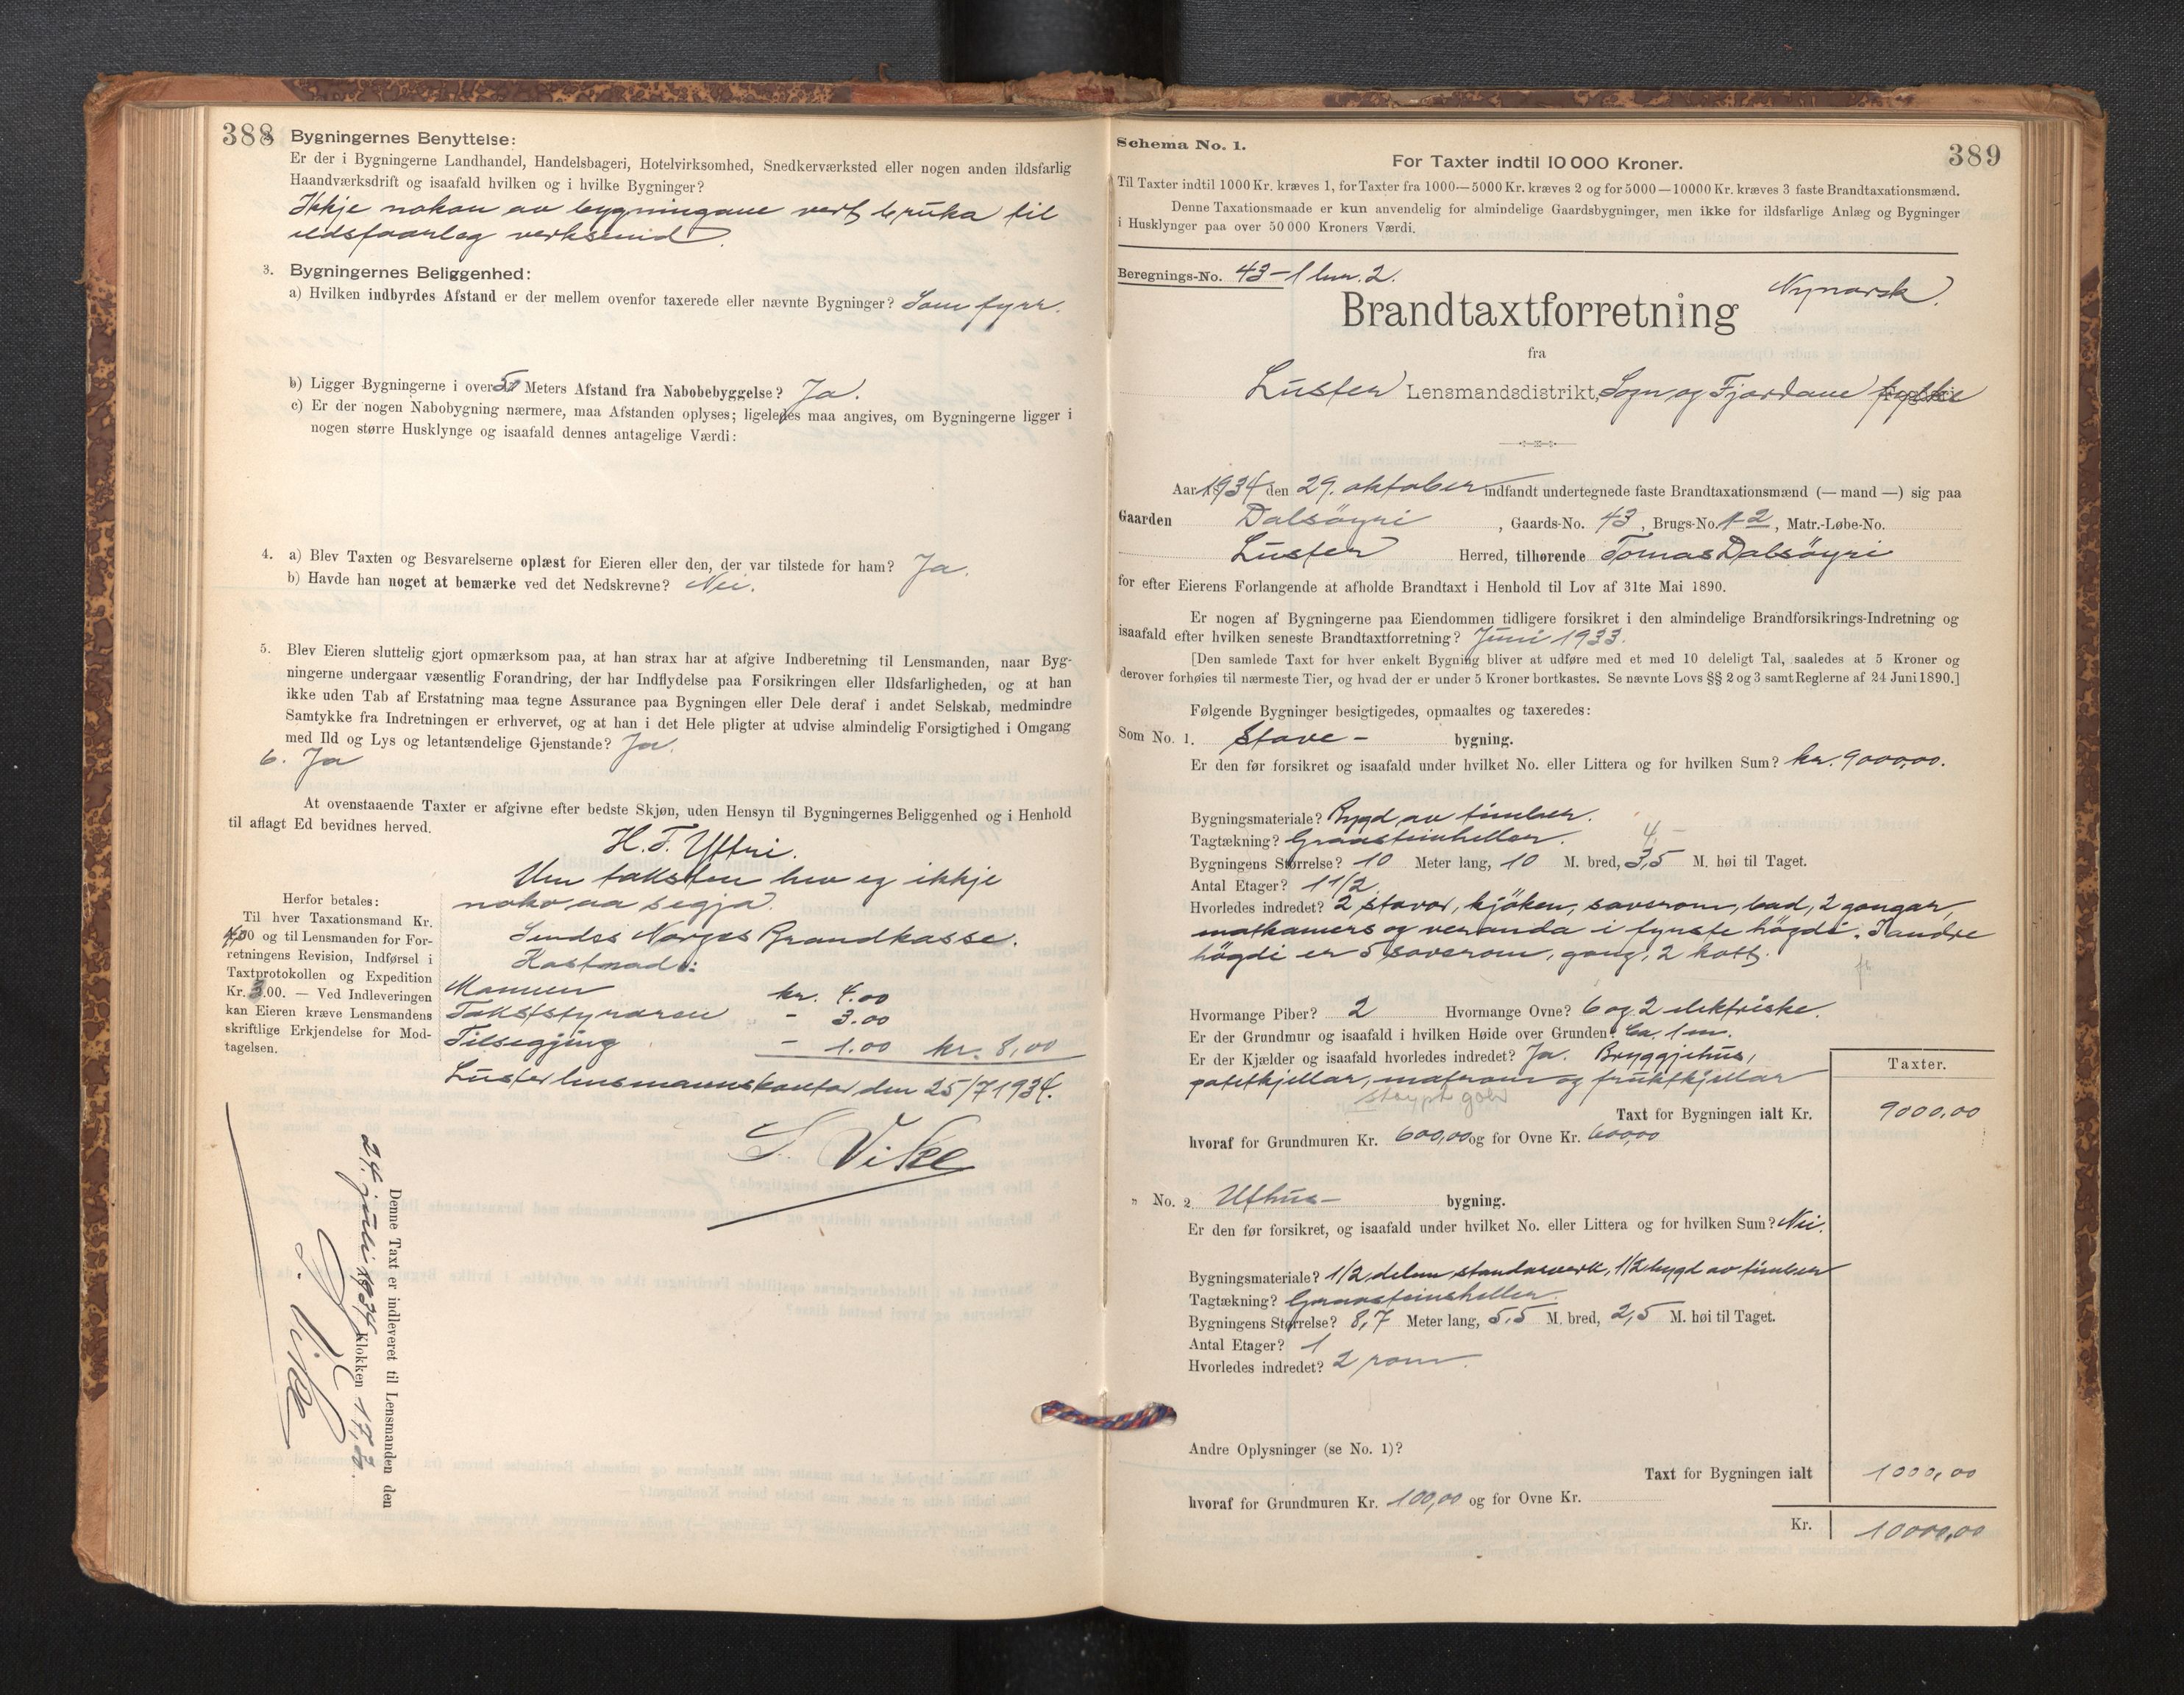 388
2. Bygningernes Benyttelse:
Er der i Bygningerne Landhandel, Handelsbageri, Hotelvirksomhed, Snedkerværksted eller nogen anden ildsfarlig
Haandværksdrift og isaafald hvilken og i hvilke Bygninger?
Ikkje nokon av bygningane vert bruka til
eldsfaarleg verksemd.
3. Bygningernes Beliggenhed:
a) Hvilken indbyrdes Afstand er der mellem ovenfor taxerede eller nævnte Bygninger? Som fyrr.
b) Ligger Bygningerne i over 5 Meters Afstand fra Nabobebyggelse? Ja.
c) Er der nogen Nabobygning nærmere, maa Afstanden oplyses; ligeledes maa angives, om Bygningerne ligger i
nogen større Husklynge og isaafald dennes antagelige Værdi:
4. a) Blev Taxten og Besvarelserne oplæst for Eieren eller den, der var tilstede for ham? Ja.
b) Havde han noget at bemærke ved det Nedskrevne? Nei.
5. Blev Eieren sluttelig gjort opmærksom paa, at han strax har at afgive Indberetning til Lensmanden, naar Byg-
ningerne undergaar væsentlig Forandring, der har Indflydelse paa Forsikringen eller Ildsfarligheden, og at han
ikke uden Tab af Erstatning maa tegne Assurance paa Bygningen eller Dele deraf i andet Selskab, medmindre
Samtykke fra Indretningen er erhvervet, og at han i det Hele pligter at udvise almindelig Forsigtighed i Omgang
med Ild og Lys og letantændelige Gjenstande? Ja.
6. Ja
At ovenstaaende Taxter er afgivne efter bedste Skjøn, uden Hensyn til Bygningernes Beliggenhed og i Henhold
til aflagt Ed bevidnes herved.
H. T. Yttri.
Um taksten hev eg ikkje
noko aa segja.
Sendes Norges Brandkasse.
Kostnad:
Mannen kr. 4.00
Takststyraren - 3.00
Tilsegjing - 1.00 kr. 8,00
Luster lensmannskontor den 25/7 1934.
S. Vike
Herfor betales:
Til hver Taxationsmand Kr.
4,00 og til Lensmanden for For-
retningens Revision, Indførsel i
Taxtprotokollen og Expedition
Kr. 3.00. — Ved Indleveringen
kan Eieren kræve Lensmandens
skriftlige Erkjendelse for Mod-
tagelsen.
Denne Taxt er indleveret til Lensmanden den
24. juli 1934 Klokken 17,30.
S. Vike
389
Schema No. 1.
For Taxter indtil 10 000 Kroner.
Til Taxter indtil 1000 Kr. kræves 1, for Taxter fra 1000—5000 Kr. kræves 2 og for 5000—10000 Kr. kræves 3 faste Brandtaxationsmænd.
Denne Taxationsmaade er kun anvendelig for almindelige Gaardsbygninger, men ikke for ildsfarlige Anlæg og Bygninger
i Husklynger paa over 50 000 Kroners Værdi.
Beregnings-No. 43 - 1 lnr. 2.
Nynorsk.
Brandtaxtforretning
fra
Luster Lensmandsdistrikt, Sogn og Fjordane fylke
Aar 1934 den 29. oktober indfandt undertegnede faste Brandtaxationsmænd (— mand —) sig paa
Gaarden Dalsöyri, Gaards-No. 43, Brugs-No. 1-2, Matr.-Løbe-No.
Luster Herred, tilhørende Tomas Dalsöyri
for efter Eierens Forlangende at afholde Brandtaxt i Henhold til Lov af 31te Mai 1890.
Er nogen af Bygningerne paa Eiendommen tidligere forsikret i den almindelige Brandforsikrings-Indretning og
isaafald efter hvilken seneste Brandtaxtforretning? Juni 1933.
[Den samlede Taxt for hver enkelt Bygning bliver at udføre med et med 10 deleligt Tal, saaledes at 5 Kroner og
derover forhøies til nærmeste Tier, og hvad der er under 5 Kroner bortkastes. Se nævnte Lovs §§ 2 og 3 samt Reglerne af 24 Juni 1890.]
Følgende Bygninger besigtigedes, opmaaltes og taxeredes:
Som No. 1. Stove- bygning.
Er den før forsikret og isaafald under hvilket No. eller Littera og for hvilken Sum? kr. 9000,00.
Bygningsmateriale? Bygd av timber.
Tagtækning? Graasteinheller. 4,-
Bygningens Størrelse? 10 Meter lang, 10 M. bred, 3,5 M. høi til Taget.
Antal Etager? 1 1/2
Hvorledes indredet? 2 stovor, kjöken, soverom, bad, 2 gongar,
matkamers og veranda i fyrste högdi. I andre
högdi er 5 soverom, gong, 2 kott.
Hvormange Piber? 2 Hvormange Ovne? 6 og 2 elektriske.
Er der Grundmur og isaafald i hvilken Høide over Grunden? Ca. 1 m.
Er der Kjælder og isaafald hvorledes indredet? Ja. Bryggjehus,
potetkjellar, matrom og fruktkjellar
støypt golv
Taxter.
Taxt for Bygningen ialt Kr. 9000,00
hvoraf for Grundmuren Kr. 600,00 og for Ovne Kr. 600,00
" No. 2 Uthus- bygning.
Er den før forsikret, og isaafald under hvilket No. eller Littera og for hvilken Sum? Nei.
Bygningsmateriale? 1/2 delen standarverk, 1/2 bygd av timber
Tagtækning? Graasteinsheller.
Bygningens Størrelse? 8,7 Meter lang, 5,5 M. bred, 2,5 M. høi til Taget.
Antal Etager? 1
Hvorledes indredet? 2 rom.
Andre Oplysninger (se No. 1)?
Taxt for Bygningen ialt 1000,00
hvoraf for Grundmuren Kr. 100,00 og for Ovne Kr.
Kr. 10000,00